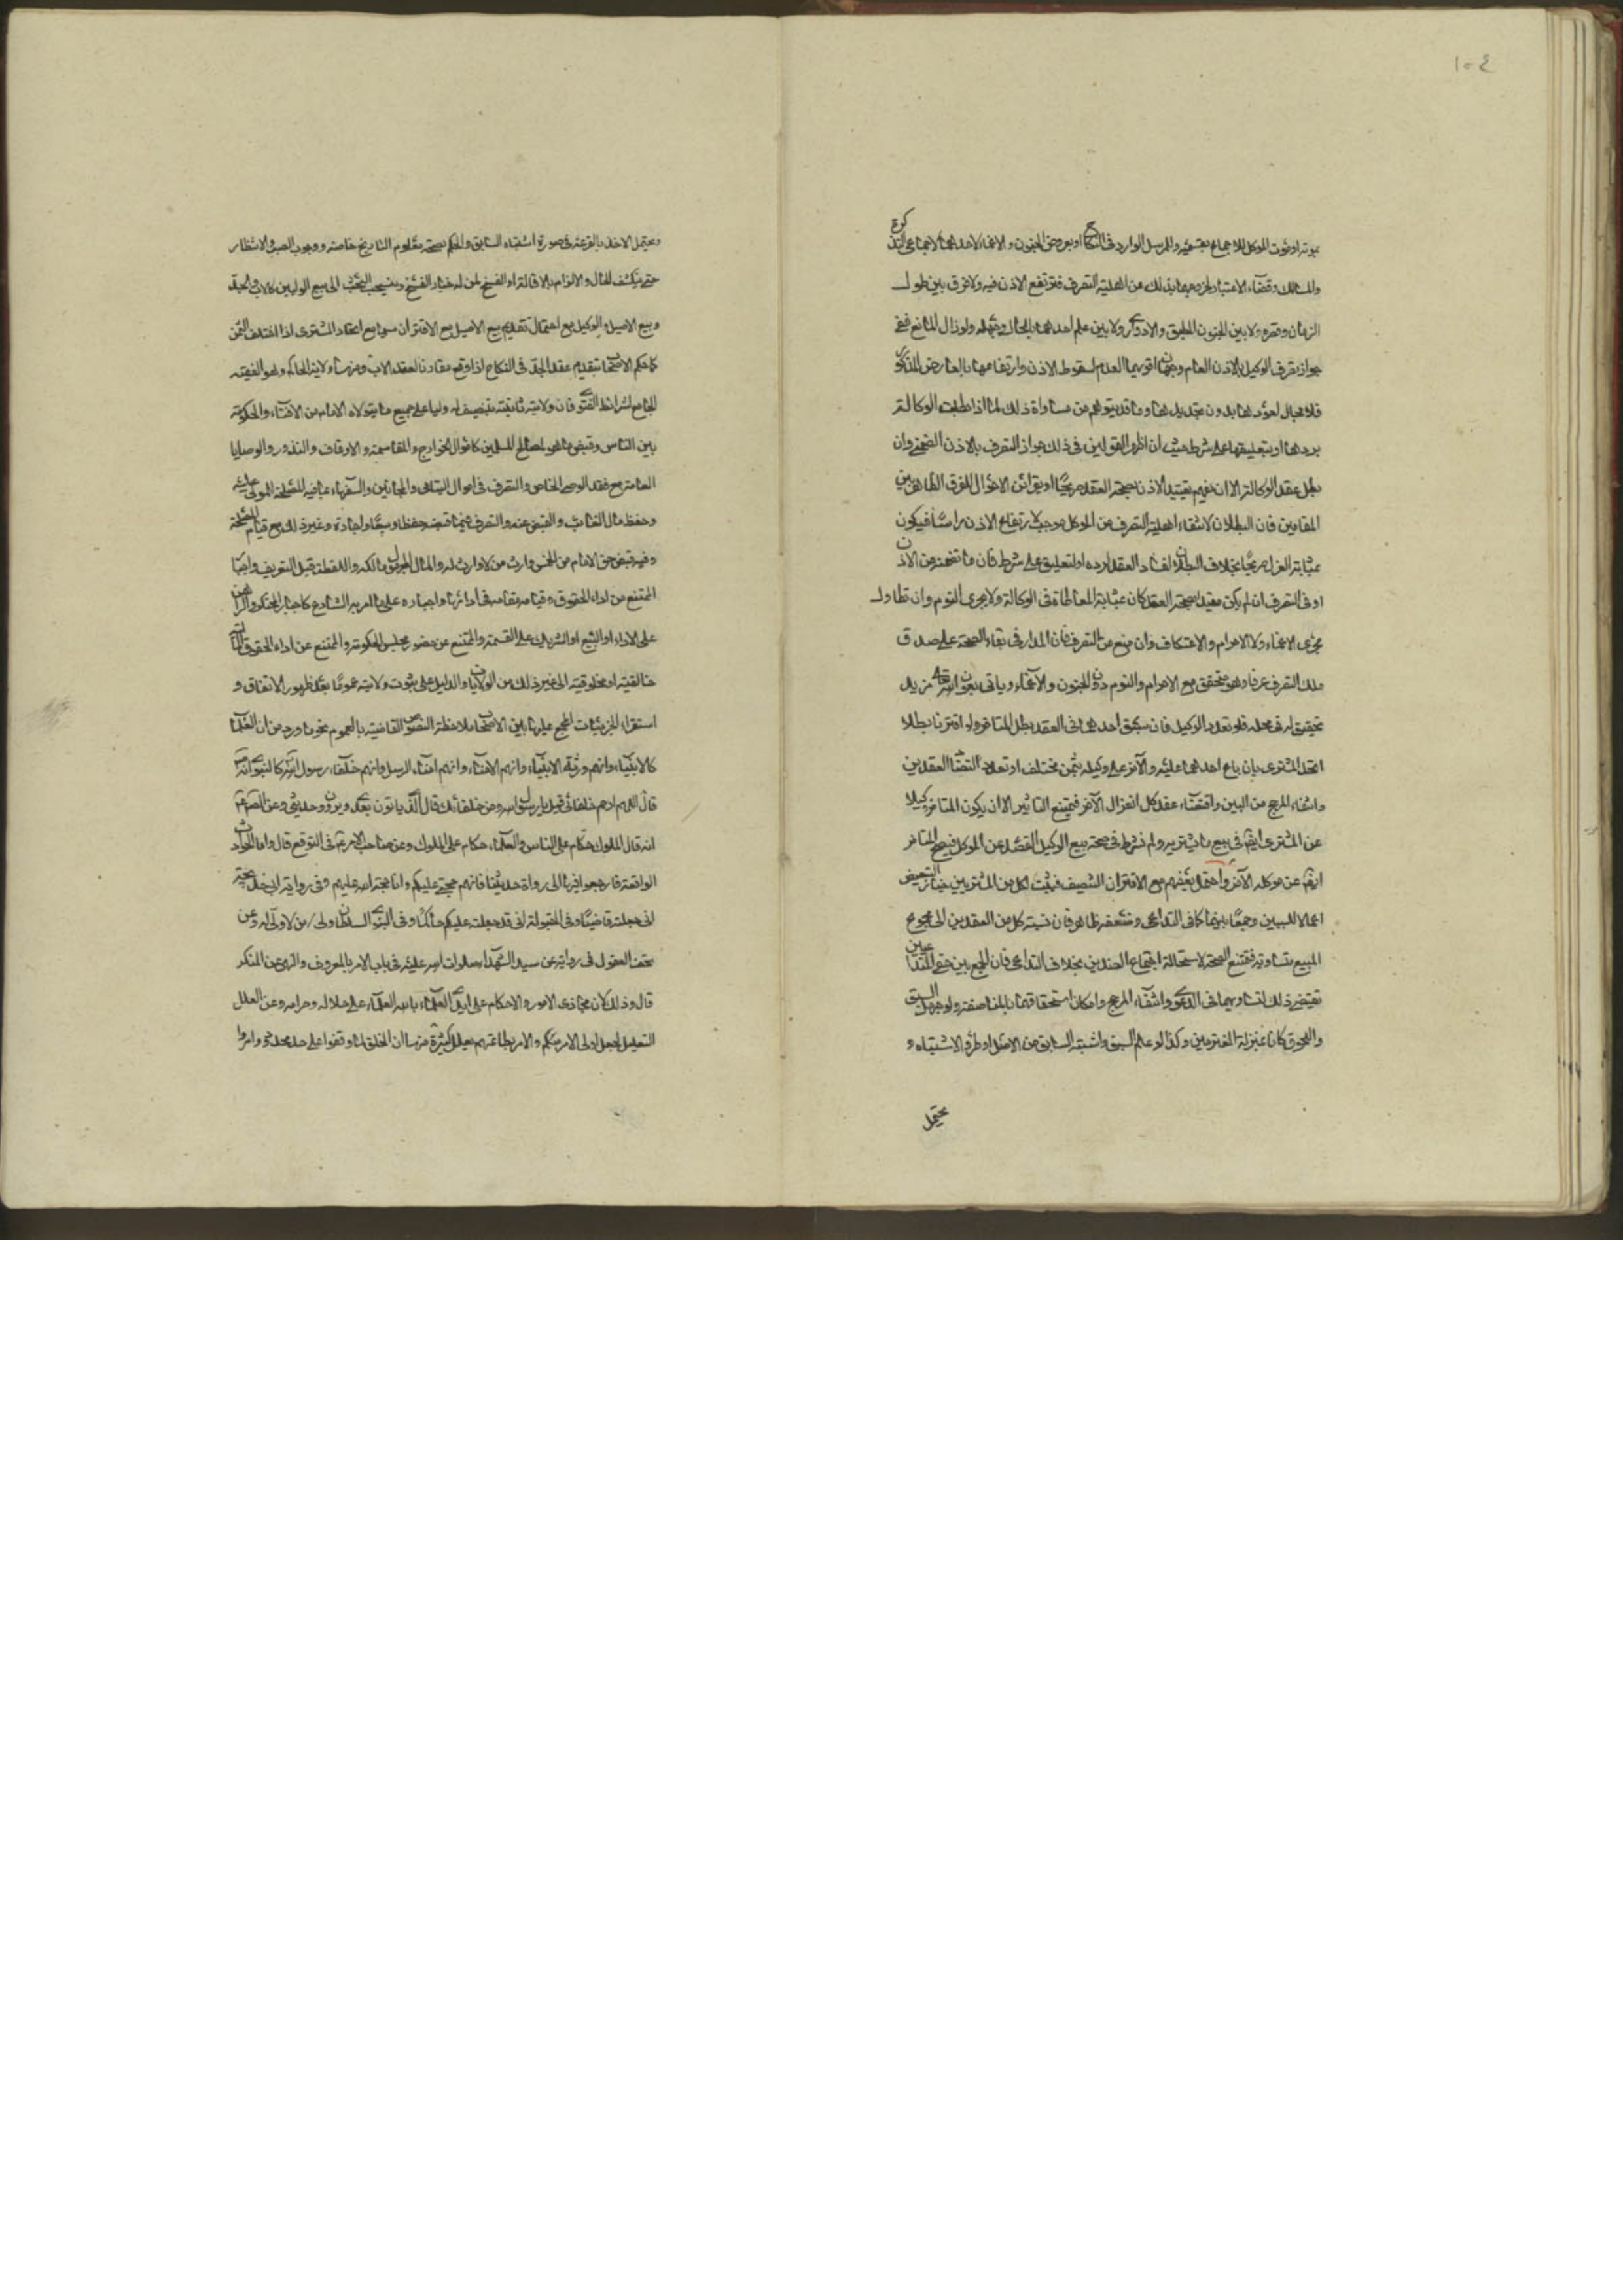 ١٠٤
بموته او بموت الموكل للاجماع بقسميه وللمرسل الوارد في النكاح او بعروض الجنون والاغماء لاحدهما للاجماع في التذكرة
والمسالك وقضاء الاعتبار بخروجهما بذلك عن اهلية التصرف فيرتفع الاذن فيه ولا فرق بين طول
الزمان وقصره ولا بين الجنون المطبق والادواري ولا بين علم احدهما بالحال وجهله ولو زال المانع ففي
جواز تصرف الوكيل بالاذن العام وجهان اقويهما العدم لسقوط الاذن وارتفاعها بالعارض المذكور
فلا مجال لعودها بدون تجديدها وما قد يتوهم من مساواة ذلك لما اذا بطلت الوكالة
بردها او بتعليقها على شرط حيث ان اظهر القولين في ذلك جواز التصرف بالاذن الضمني وان
بطل عقد الوكالة الا ان يفهم تقييد الاذن بصحة العقد صريحا او بقرائن الاحوال للفرق الظاهر بين
المقامين فان البطلان لانتفاء اهلية التصرف من الموكل موجب لارتفاع الاذن راسا فيكون
بمثابة العزل صريحا بخلاف البطلان لفساد العقد لرده او لتعليق على شرط فان ما تضمنه من الاذن
او في التصرف ان لم يكن مقيد بصحة العقد كان بمثابة المعاطاة في الوكالة ولا يجري النوم وان تطاول
مجرى الاغماء ولا الاحرام والاعتكاف وان منع من التصرف فان المدار في بقاء الصحة على صدق
ملك التصرف عرفا وهو متحقق مع الاحرام والنوم دون الجنون والاغماء وياتي بعون الله تعالى مزيد
تحقيق له في محله فلو تعدد الوكيل فان سبق احدهما في العقد بطل المتاخر ولو اقترنا بطلا
اتحد المشتري بان باع احدهما عليه والاخر على وكيله بثمن مختلف او تعدد لتضاد العقدين
وانتفاء المرجح من البين واقتضاء عقد كل انعزال الاخر فيمتنع التاثير الا ان يكون المتاخر وكيلا
عن المشتري ايضا في بيع ما يشتريه ولم نشترط في صحة بيع الوكيل القصد عن الموكل فيصح المتاخر
ايضا عن موكله الاخر واحتمل بعضهم مع الاقتران التنصيف فيثبت لكل من المشتريين خيار التبعيض
اعمالا للسببين وجمعا بينهما كما في التداعي وضعفه ظاهر فان نسبة كل من العقدين الى مجموع
المبيع متساوية فتمتنع الصحة لاستحالة اجتماع الضدين بخلاف التداعي فان الجمع بين حقي المتداعيين
يقتضي ذلك لتساويهما في الدعوى وانتفاء المرجح وامكان استحقاقهما بالمناصفة ولو جهل السبق
واللحوق كانا بمنزلة المقترنين وكذا لو علم السبق واشتبه السابق من الاصل او طرء الاشتباه و
يحتمل
ويحتمل الاخذ بالقرعة في صورة اشتباه السابق والحكم بصحة معلوم التاريخ خاصة ووجوب الصبر والانتظار
حتى ينكشف الحال والالزام بالاقالة او الفسخ لمن له خيار الفسخ وينسحب البحث الى بيع الوليين كالاب والجد
وبيع الاصيل والوكيل مع احتمال تقديم بيع الاصيل مع الاقتران سيما مع اتحاد المشتري اذا اختلف الثمن
كما حكم الاصحاب بتقديم عقد الجد في النكاح اذا وقع مقارنا لعقد الاب ومنها ولاية الحاكم وهو الفقيه
الجامع لشرائط الفتوى فان ولايته ثابتة بتنصيبه وليا على جميع ما يتولاه الامام من الافتاء والحكومة
بين الناس وقبض ما هو لمصالح المسلمين كاموال الخوارج والمقاسمة والاوقاف والنذور والوصايا
العامة مع فقد الوصي الخاص والتصرف في اموال اليتامى والمجانين والسفهاء بما فيه المصلحة للمولى عليه
وحفظ مال الغائب والقبض عنه والتصرف فيما قبضه حفظا وبيعا واجارة وغير ذلك مع قيام المصلحة
وفيه قبض حق الامام من الخمس وارث من لا وارث له والمال المجهول مالكه واللقطة قبل التعريف واجبار
الممتنع من اداء الحقوق وقيامه مقامه في ادائها واجباره على ما امر به الشارع كاجبار المحتكر والراهن
على الاداء او البيع او الشريك على القسمة والممتنع عن حضور مجلس الحكومة والممتنع عن اداء الحقوق
خالقية او مخلوقية الى غير ذلك من الولايات والدليل على ثبوت ولايته عموما بعد ظهور الاتفاق و
استقراء الجزئيات المجمع عليها بين الاصحاب ملاحظة النصوص القاضية بالعموم نحو ما ورد من ان العلماء
كالانبياء وانهم ورثة الانبياء وانهم الامناء وانهم امناء الرسل وانهم خلفاء رسول الله كالنبوي انه
قال اللهم ارحم خلفائي قيل يا رسول الله ومن خلفائك قال الذين ياتون بعدي ويروون حديثي وعن الصادق ع
انه قال الملوك حكام على الناس والعلماء حكام على الملوك وعن صاحب الامر ع في التوقيع قال واما الحوادث
الواقعة فارجعوا فيها الى رواة حديثنا فانهم حجتي عليكم وانا حجة الله عليهم وفي رواية ابي خديجة
اني جعلته قاضيا وفي المقبولة اني قد جعلته عليكم حاكما وفي النبوي السلطان ولي من لا ولي له وعن
تحف العقول في رواية عن سيد الشهداء صلوات الله عليه في باب الامر بالمعروف والنهي عن المنكر
قال وذلك لان مجاري الامور والاحكام على ايدي العلماء بالله العلماء على حلاله وحرامه وعن العلل
التعليل لجعل اولي الامر منكم والامر بطاعتهم بعلل كثيرة منها ان الخلق لما وقفوا على حد محدود وامروا